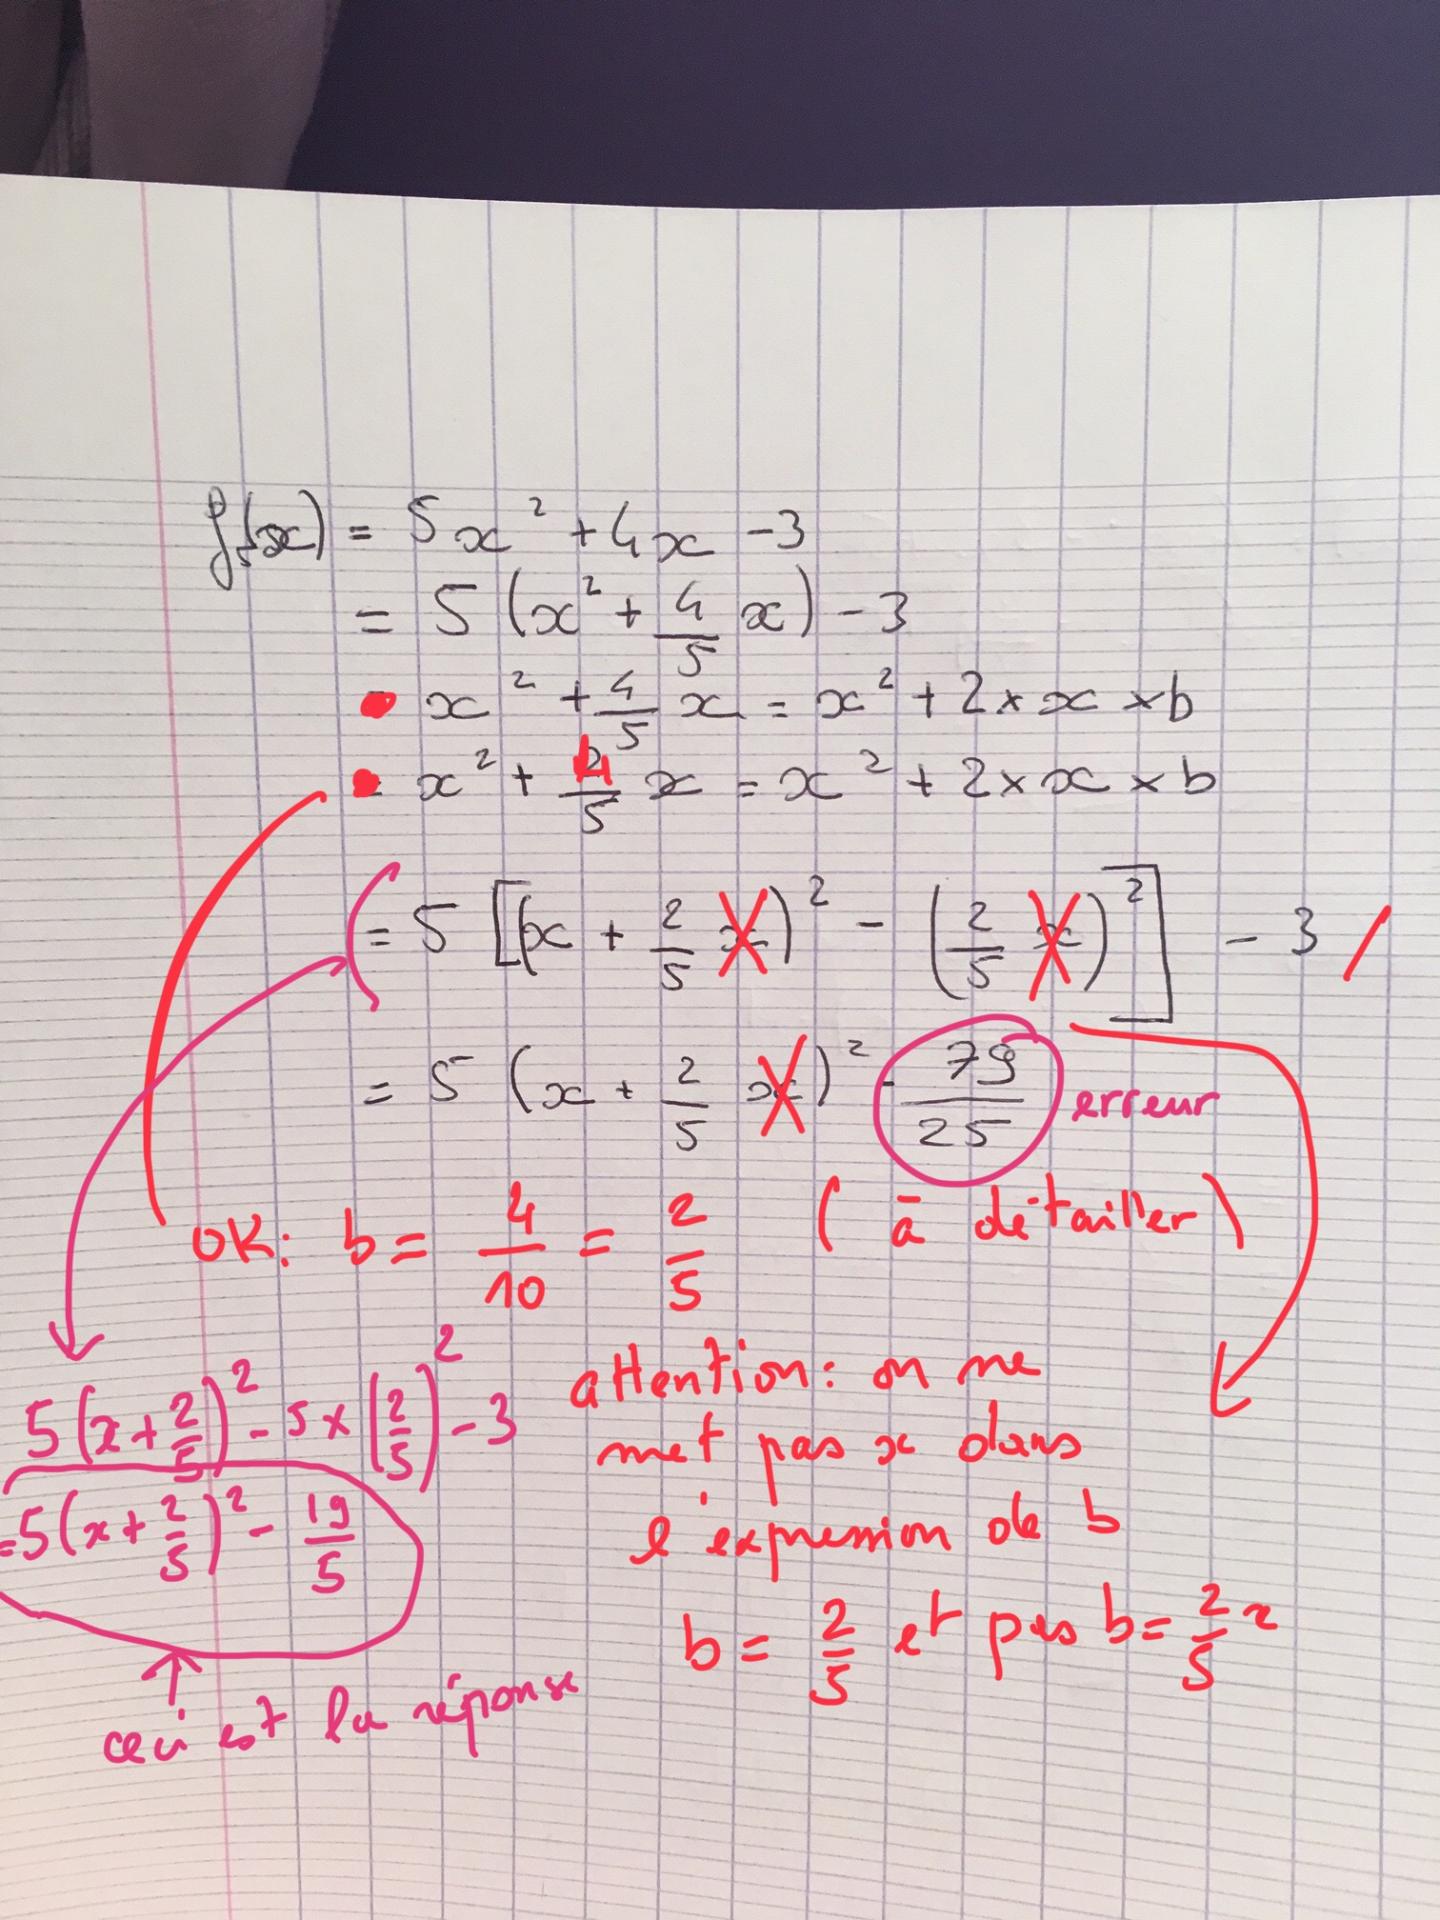 f(x) = 5x² + 4x - 3
= 5 (x² + 4/5 x) - 3
• x² + 4/5 x = x² + 2 × x × b
• x² + 4/5 x = x² + 2 × x × b
= 5 [(x + 2/5 x)² - (2/5 x)²] - 3 /
= 5 (x + 2/5 x)² - 79/25 erreur
OK: b = 4/10 = 2/5 (à détailler)
5(x + 2/5)² - 5 × (2/5)² - 3
= 5(x + 2/5)² - 19/5
ceci est la réponse
attention: on ne
met pas x dans
l'expression de b
b = 2/5 et pas b = 2/5 x